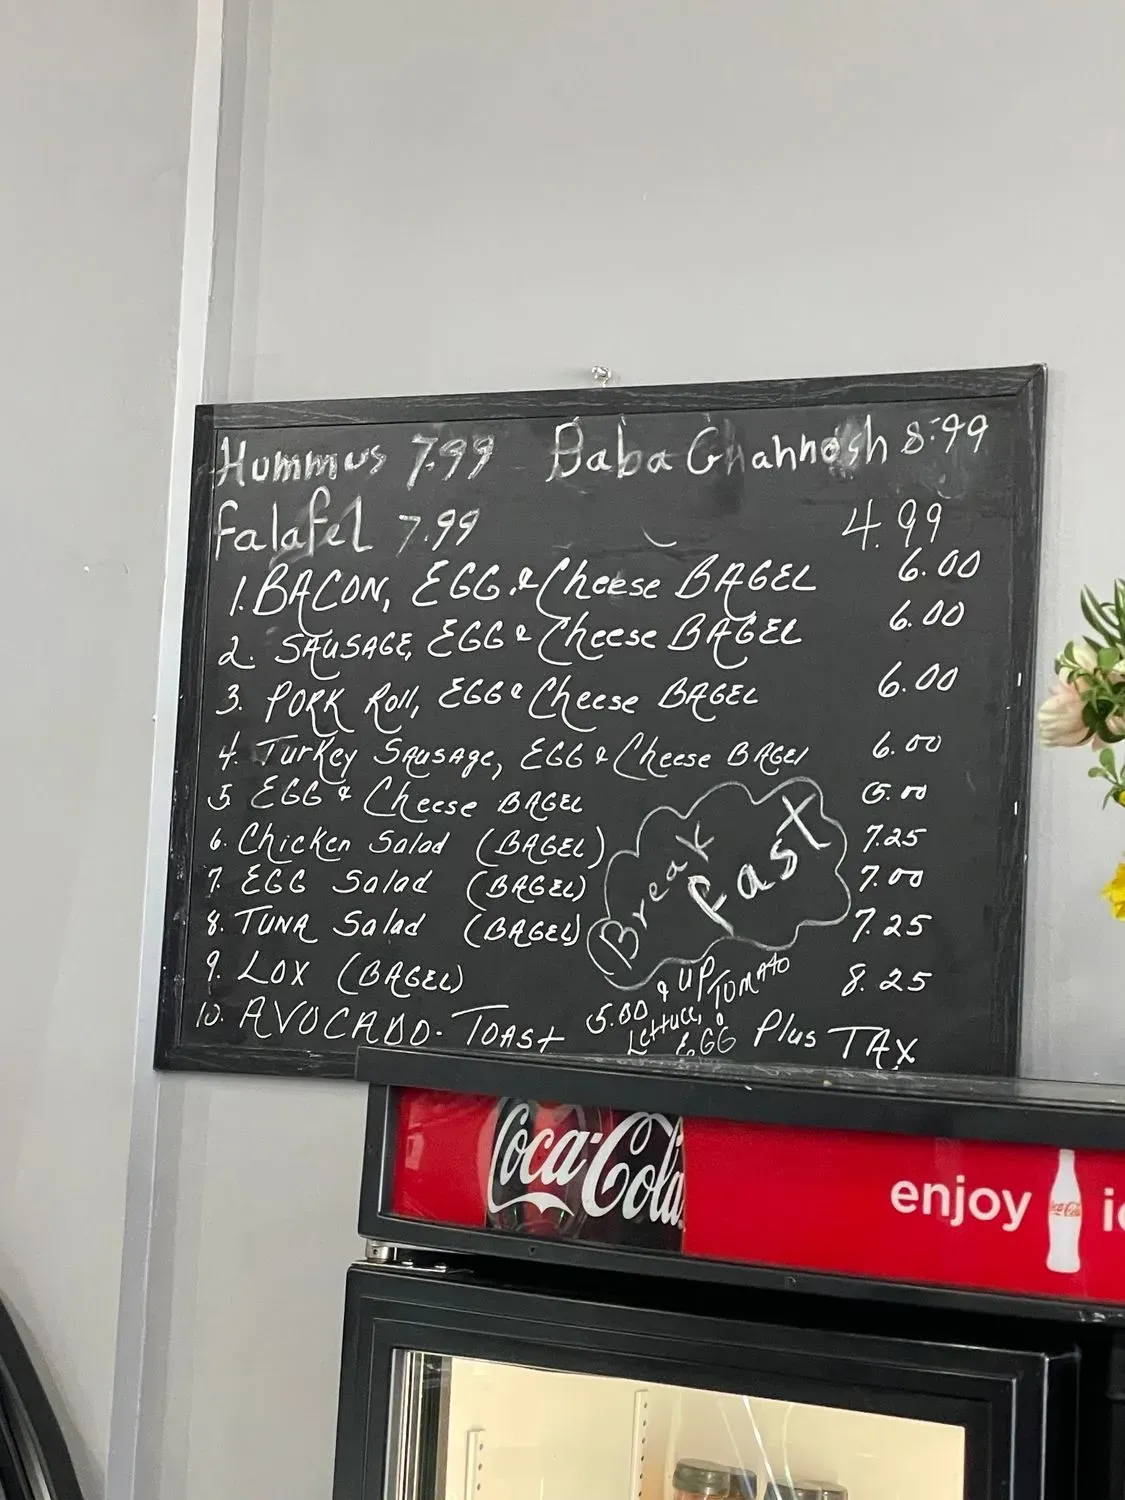 Hummus 7.99 Baba Ghannosh 8.99
Falafel 7.99 4.99
1. BACON, EGG & Cheese BAGEL 6.00
2. SAUSAGE, EGG & Cheese BAGEL 6.00
3. PORK Roll, EGG & Cheese BAGEL 6.00
4. Turkey Sausage, EGG & Cheese BAGEL 6.00
5. EGG & Cheese BAGEL 5.00
6. Chicken Salad (BAGEL) 7.25
7. EGG Salad (BAGEL) 7.00
8. TUNA Salad (BAGEL) 7.25
9. LOX (BAGEL) 8.25
10. AVOCADO-TOAST 5.00 & UP
Lettuce, TOMATO
& EGG
Plus TAX
Break
fast
Coca-Cola
enjoy